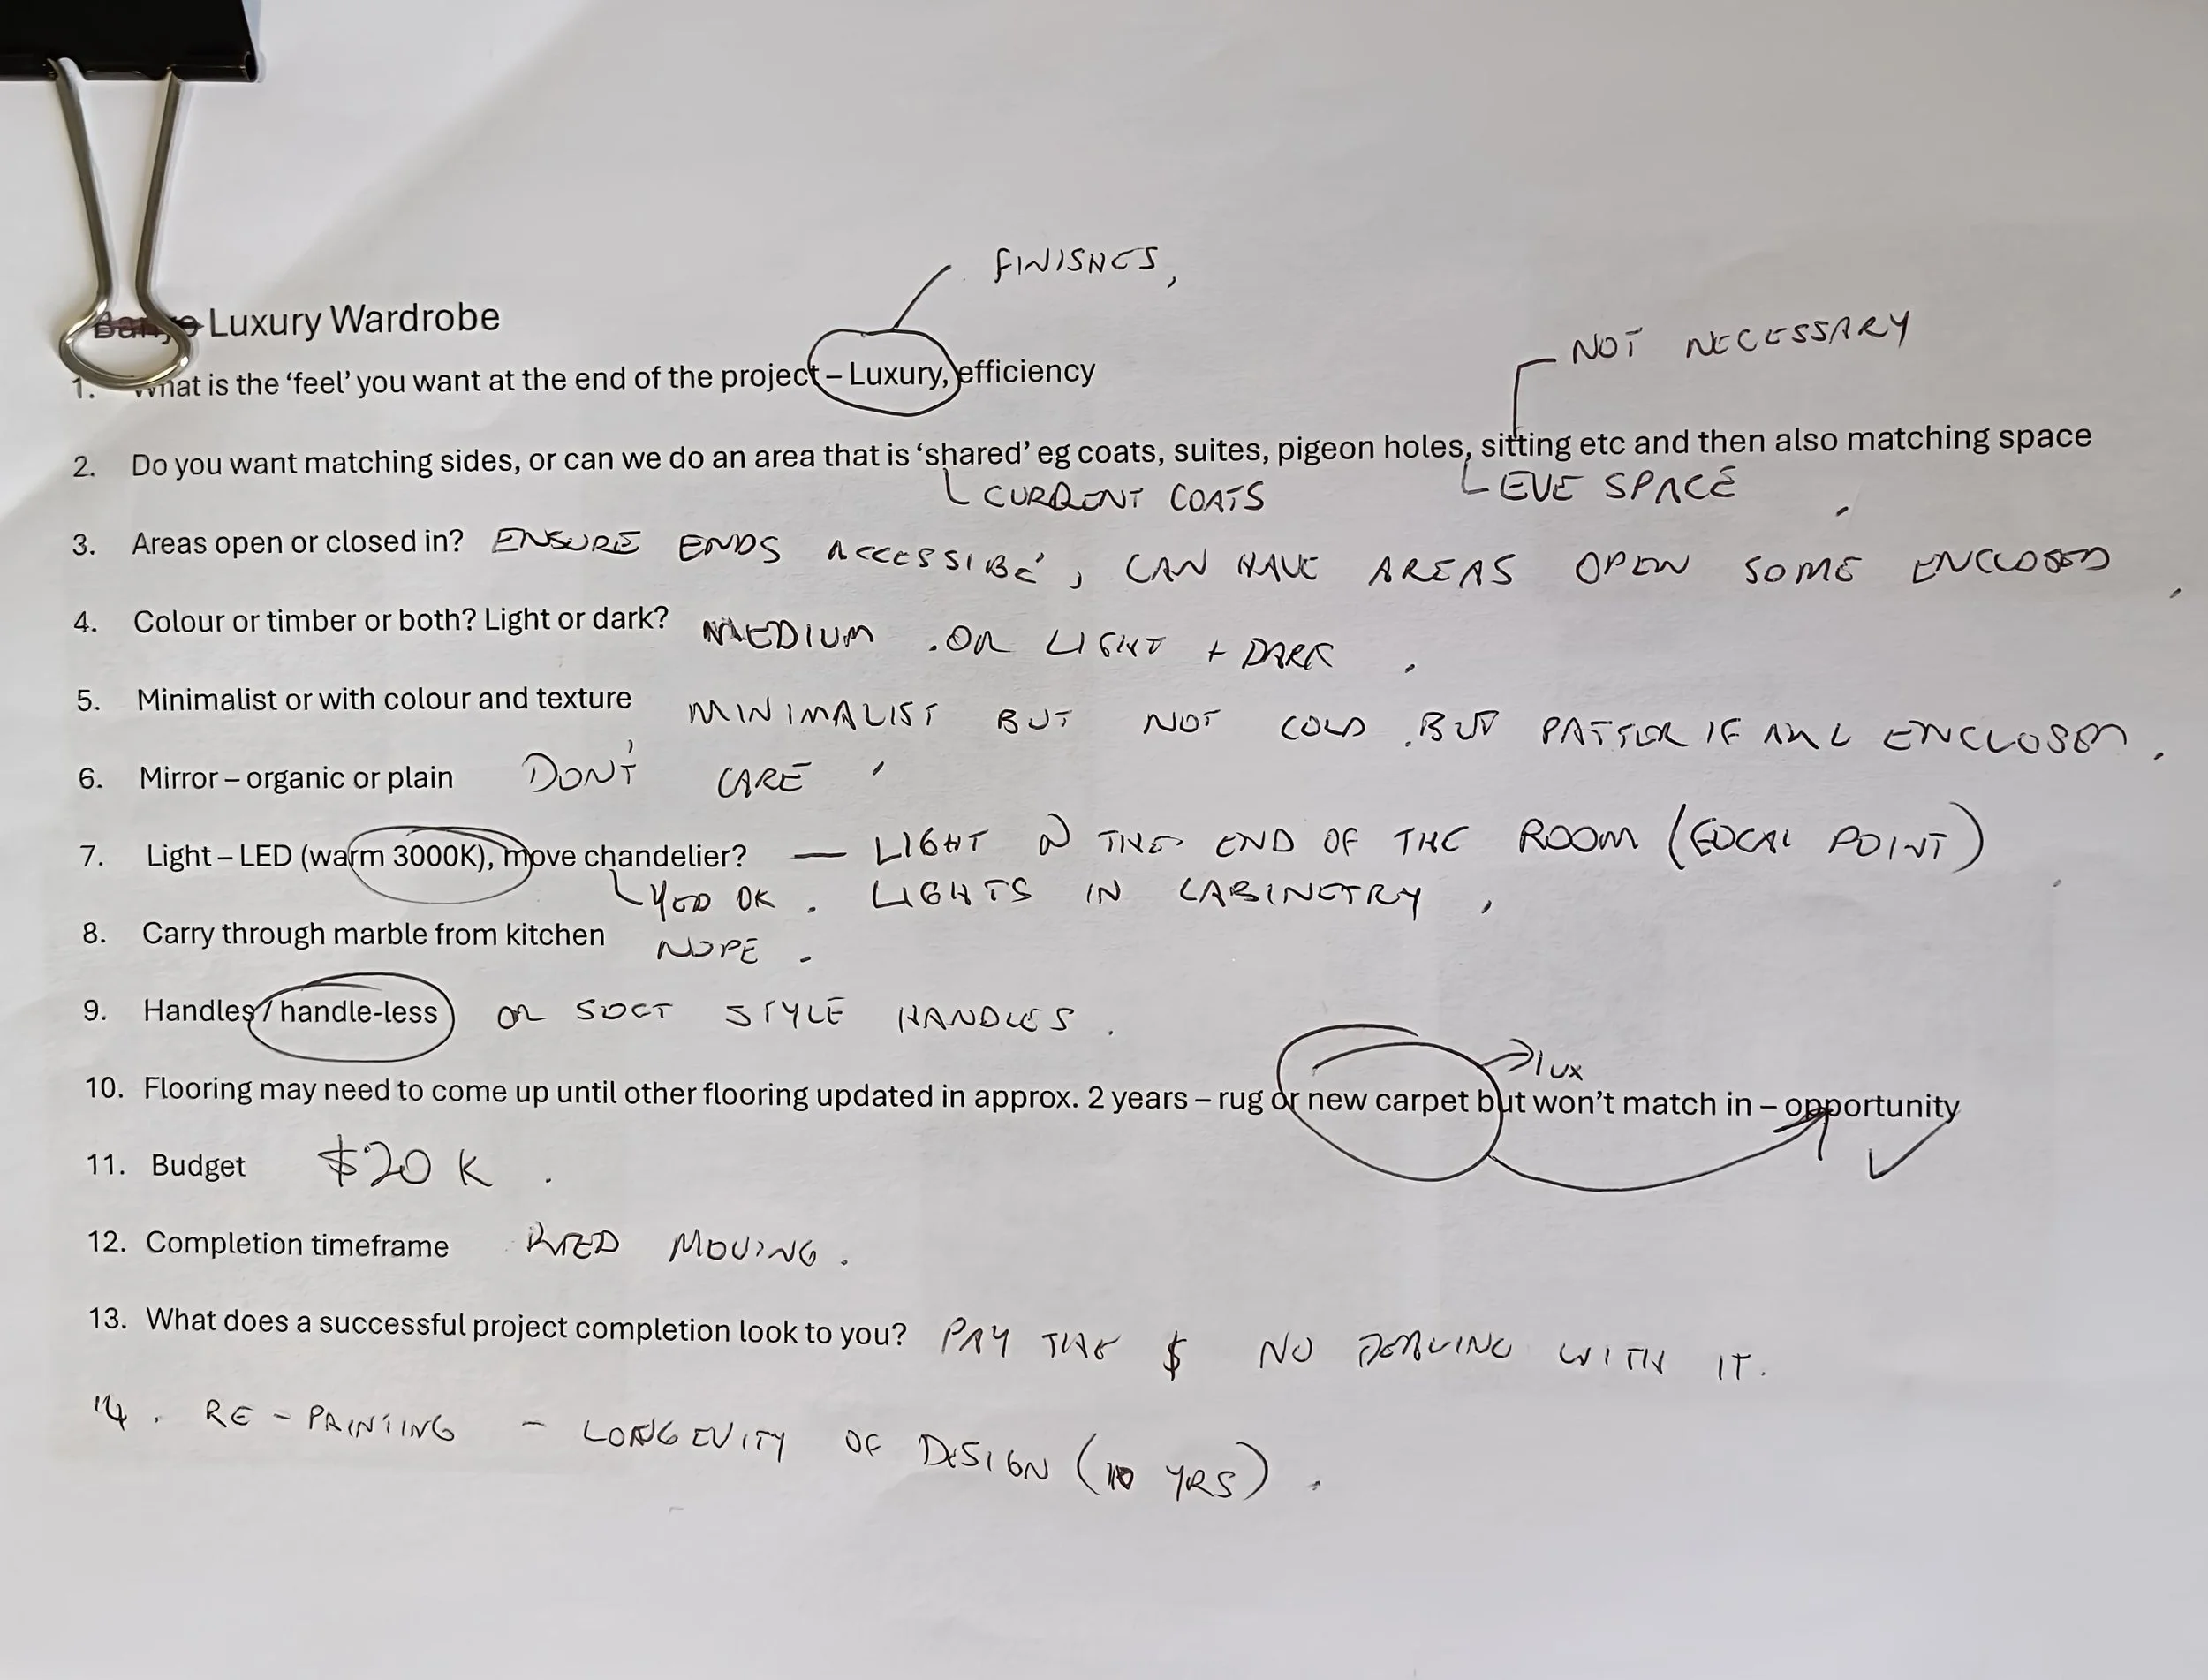 FINISHES,
Luxury Wardrobe
NOT NECESSARY
1. What is the ‘feel’ you want at the end of the project – Luxury, efficiency
2. Do you want matching sides, or can we do an area that is ‘shared’ eg coats, suites, pigeon holes, sitting etc and then also matching space
CURRENT COATS
EVE SPACE
3. Areas open or closed in? ENSURE ENDS ACCESSIBE, CAN HAVE AREAS OPEN SOME ENCLOSED
4. Colour or timber or both? Light or dark? MEDIUM. OR LIGHT + DARK.
5. Minimalist or with colour and texture MINIMALIST BUT NOT COLD. BUT IF ENCLOSED.
6. Mirror – organic or plain DON'T CARE
7. Light – LED (warm 3000K), move chandelier? — LIGHT THE END OF THE ROOM (FOCAL POINT)
OK. LIGHTS IN CABINETRY,
8. Carry through marble from kitchen NOPE.
9. Handles / handle-less OR SOFT STYLE HANDLES.
lux
10. Flooring may need to come up until other flooring updated in approx. 2 years – rug or new carpet but won’t match in – opportunity
11. Budget $20K.
12. Completion timeframe MOVING.
13. What does a successful project completion look to you? PAY THE $ NO WITH IT.
14. RE-PAINTING - LONGEVITY OF DESIGN (10 YRS).